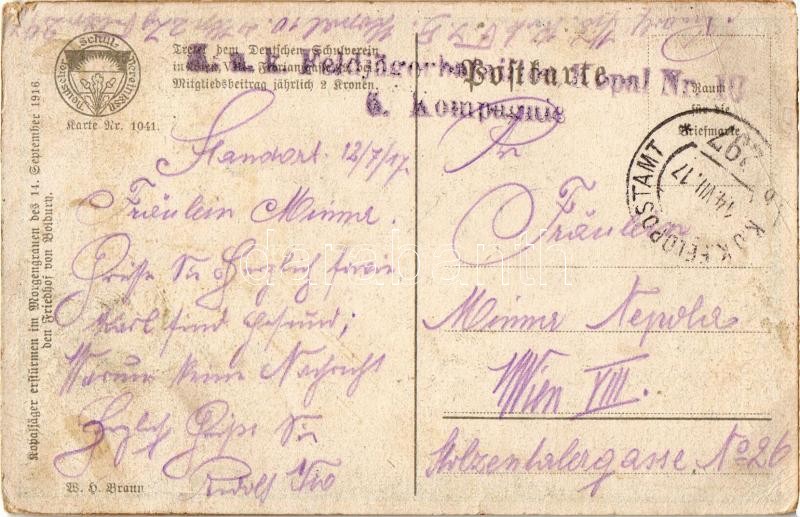 Deutscher Schulverein
Tretet dem Deutschen Schulverein
in Wien, VIII. Floriangasse
Mitgliedsbeitrag jährlich 2 Kronen.
Karte Nr. 1041.
K. u. k. Feldjägerbataillon Kopal Nr. 10
6. Kompagnie
Postkarte
Raum
für die
Briefmarke
K.u.K. FELDPOSTAMT
14.VII.17
297
Kopaljäger erstürmen im Morgengrauen des 14. September 1916
den Friedhof von Voldury.
Standort 12/7/17.
Fräulein Minna.
Grüsse Sie Herzlich sowie
Karl sind gesund;
Warum keine Nachricht
Herzlich Grüße Sie
Rudolf
W. H. Braun
An
Fräulein
Minna
Wien VIII.
Stolzenthalergasse No 26
darabanth